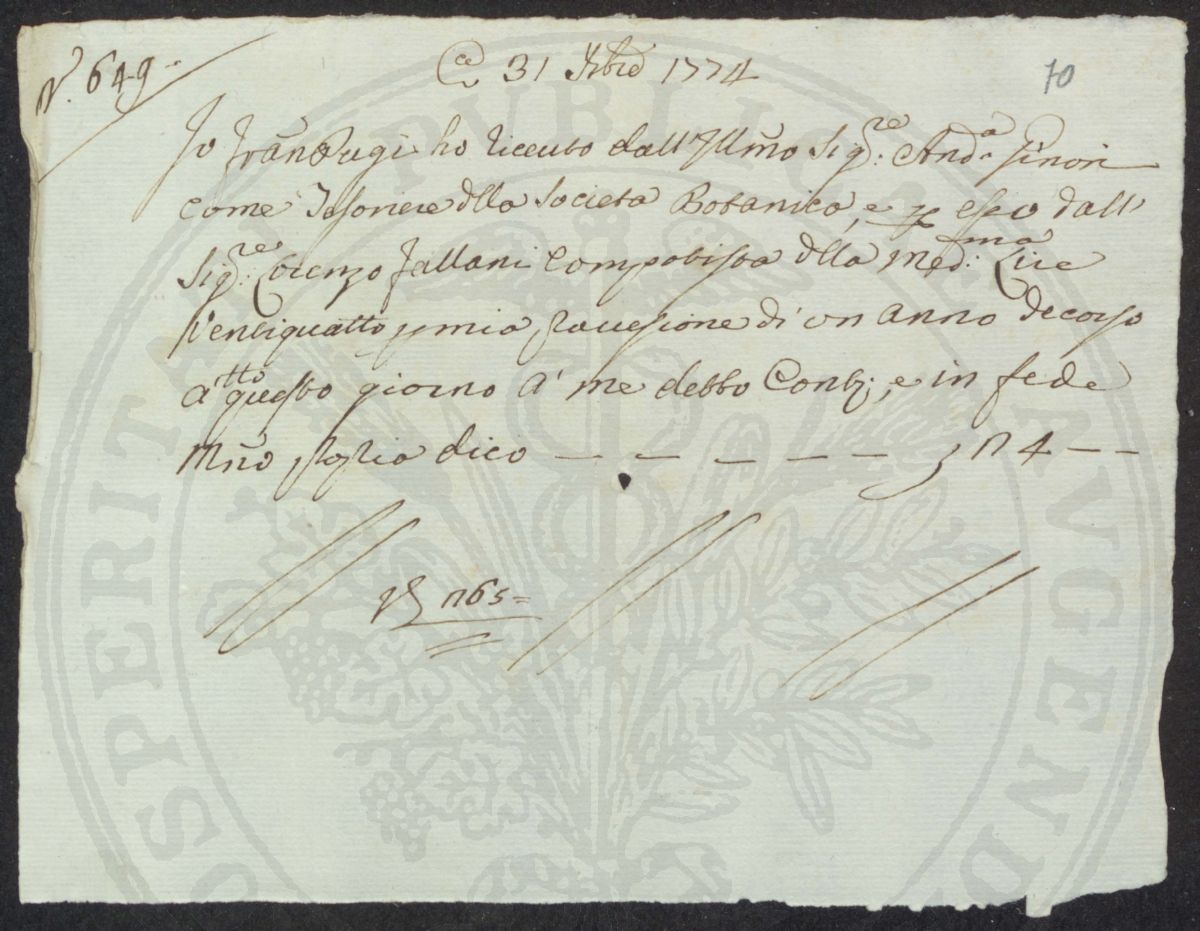 N.° 649.
10
Cce 31 Xbre 1774
Io Fran Rugi ho riceuto dall'Illmo Sigre. Anda. Ginori
come Tesoriere dlla Societa Botanica, e p esso dall'
Sigre. Lorenzo Fallani Computista dlla Medma. Lire
Ventiquattro p mia provvisione di un anno decorso
a ttto questo giorno a' me detto Conti; e in fede
Mno propria dico — — — — — — 24 — —
765=
PROSPERITATI PVBLICAE AVGENDAE